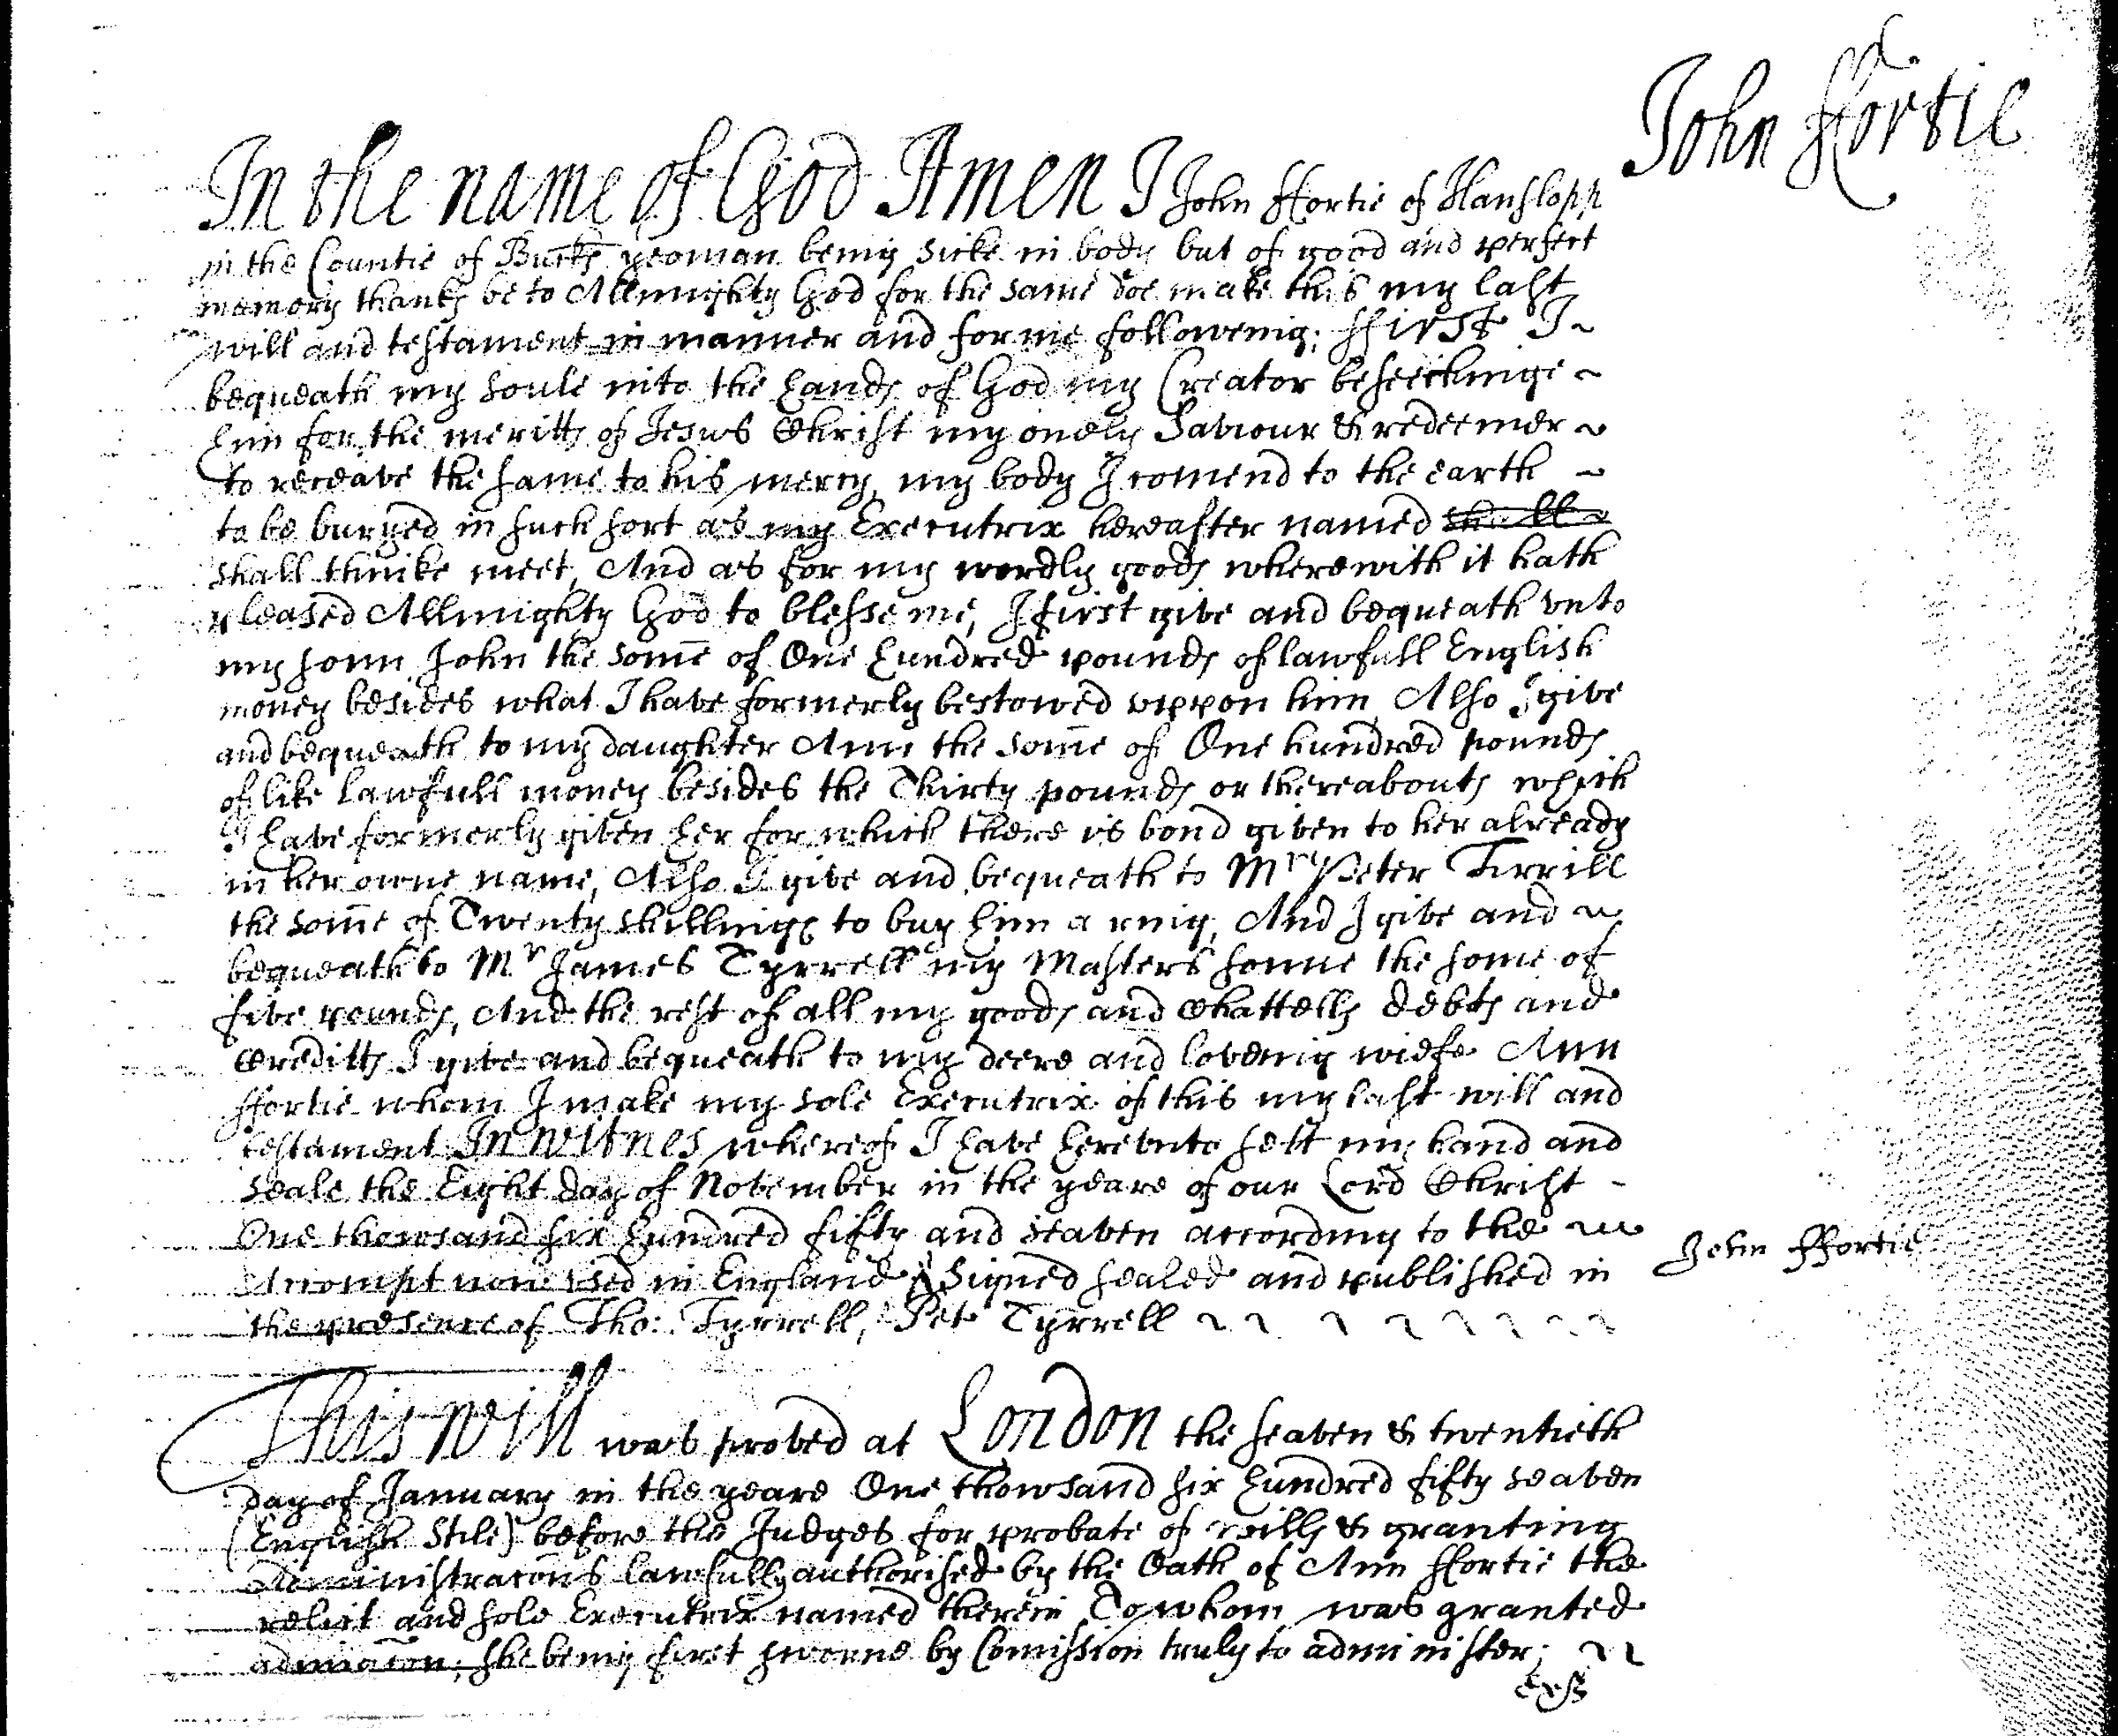 John Ffortie
In the name of God Amen I John Ffortie of Hanslopp
in the Countie of Bucks yeoman being sicke in body but of good and perfect
memory thanks be to Allmighty God for the same doe make this my last
will and testament in manner and forme followeing; Ffirst I
bequeath my soule into the hands of God my Creator beseechinge
him for the meritts of Jesus Christ my onely Saviour & redeemer
to receave the same to his mercy, my body I comend to the earth
to be buryed in such sort as my Executrix hereafter named shall
shall thinke meet, And as for my wordly goods wherewith it hath
pleased Allmighty God to blesse me, I first give and bequeath vnto
my sonn John the some of One hundred pounds of lawfull English
money besides what I have formerly bestowed vppon him Also I give
and bequeath to my daughter Ann the some of One hundred pounds
of like lawfull money besides the Thirty pounds or thereabouts which
I have formerly given her for which there is bond given to her already
in her owne name, Also I give and bequeath to Mr Peter Tirrill
the some of Twenty shillings to buy him a ring, And I give and
bequeath to Mr James Tyrrell my Masters sonne the some of
five pounds, And the rest of all my goods and Chattells debts and
Creditts I give and bequeath to my deere and loveing wiefe Ann
Ffortie whom I make my sole Executrix of this my last will and
testament In witnes whereof I have herevnto sett my hand and
seale the Eight day of November in the yeare of our Lord Christ
One thowsand six hundred fifty and seaven according to the
Accompt now vsed in England Signed sealed and published in
John Ffortie
the presence of Tho: Tyrrell, Pet Tyrrell
This will was proved at London the seaven & twentieth
day of January in the yeare One thowsand six hundred fifty seaven
(English Stile) before the Judges for probate of wills & granting
Administracons lawfully authorised by the Oath of Ann Ffortie the
relict and sole Executrix named therein To whom was granted
admiacon; she being first sworne by Comission truly to administer;